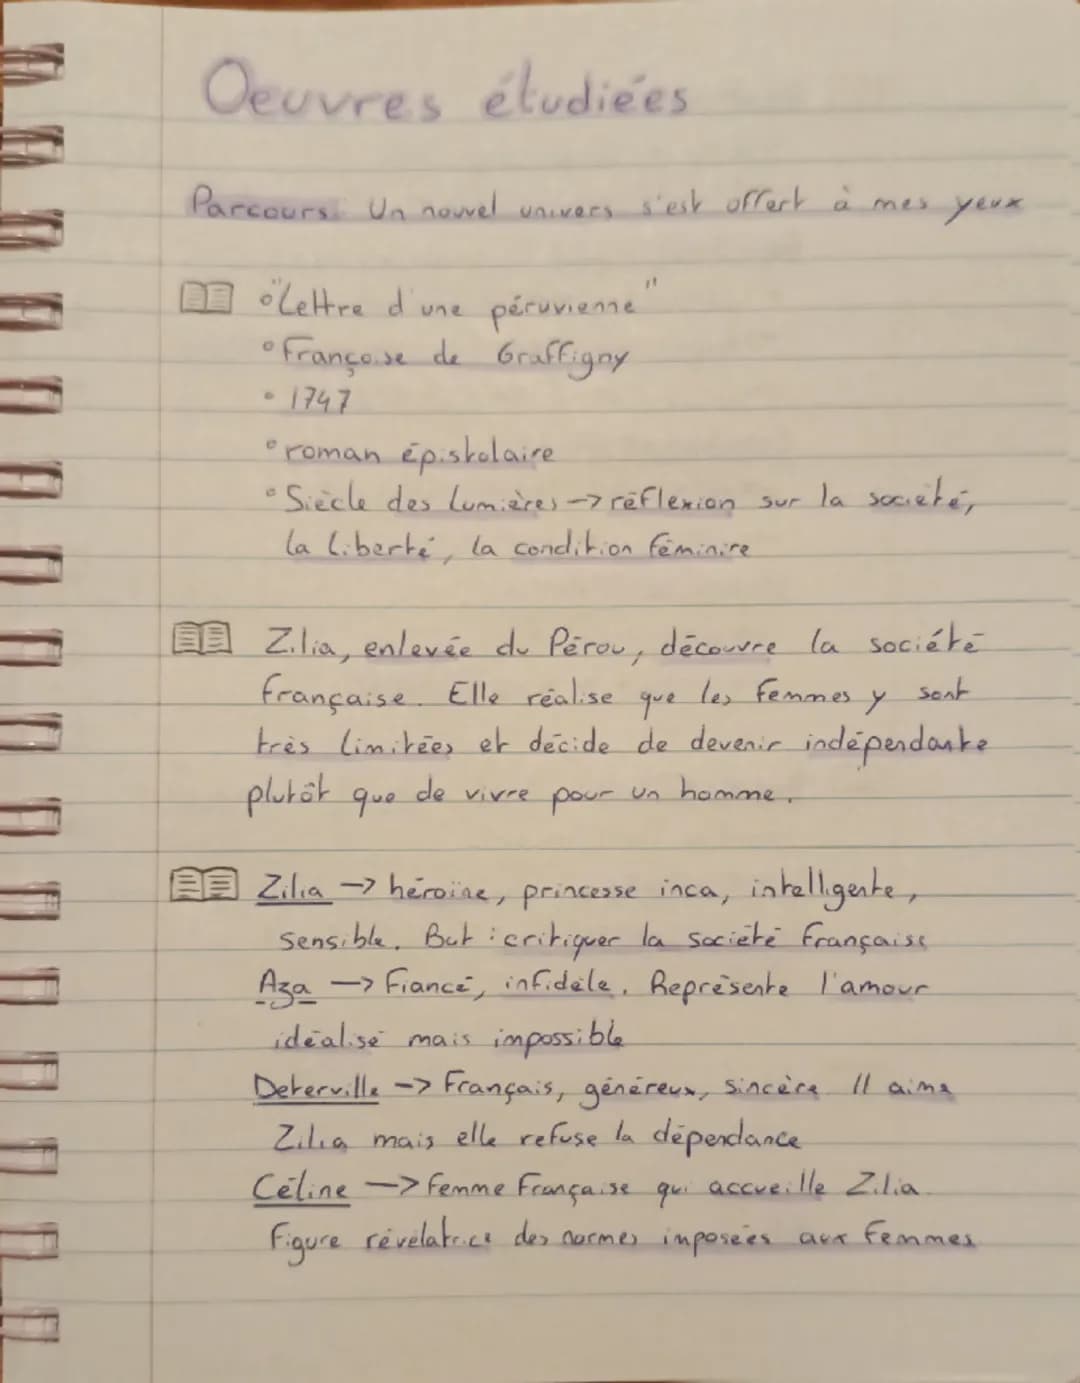 Oeuvres étudiées
Parcours: Un nouvel univers s'est offert à mes yeux
° "Lettre d'une péruvienne"
° Françoise de Graffigny
° 1747
° roman épistolaire
° Siècle des Lumières -> réflexion sur la société,
la liberté, la condition féminine
Zilia, enlevée du Pérou, découvre la société
française. Elle réalise que les femmes y sont
très limitées et décide de devenir indépendante
plutôt que de vivre pour un homme.
Zilia -> héroïne, princesse inca, intelligente,
sensible. But : critiquer la société française
Aza -> Fiancé, infidèle. Représente l'amour
idéalisé mais impossible
Deterville -> Français, généreux, sincère. Il aime
Zilia mais elle refuse la dépendance
Céline -> femme Française qui accueille Zilia.
Figure révélatrice des normes imposées aux femmes